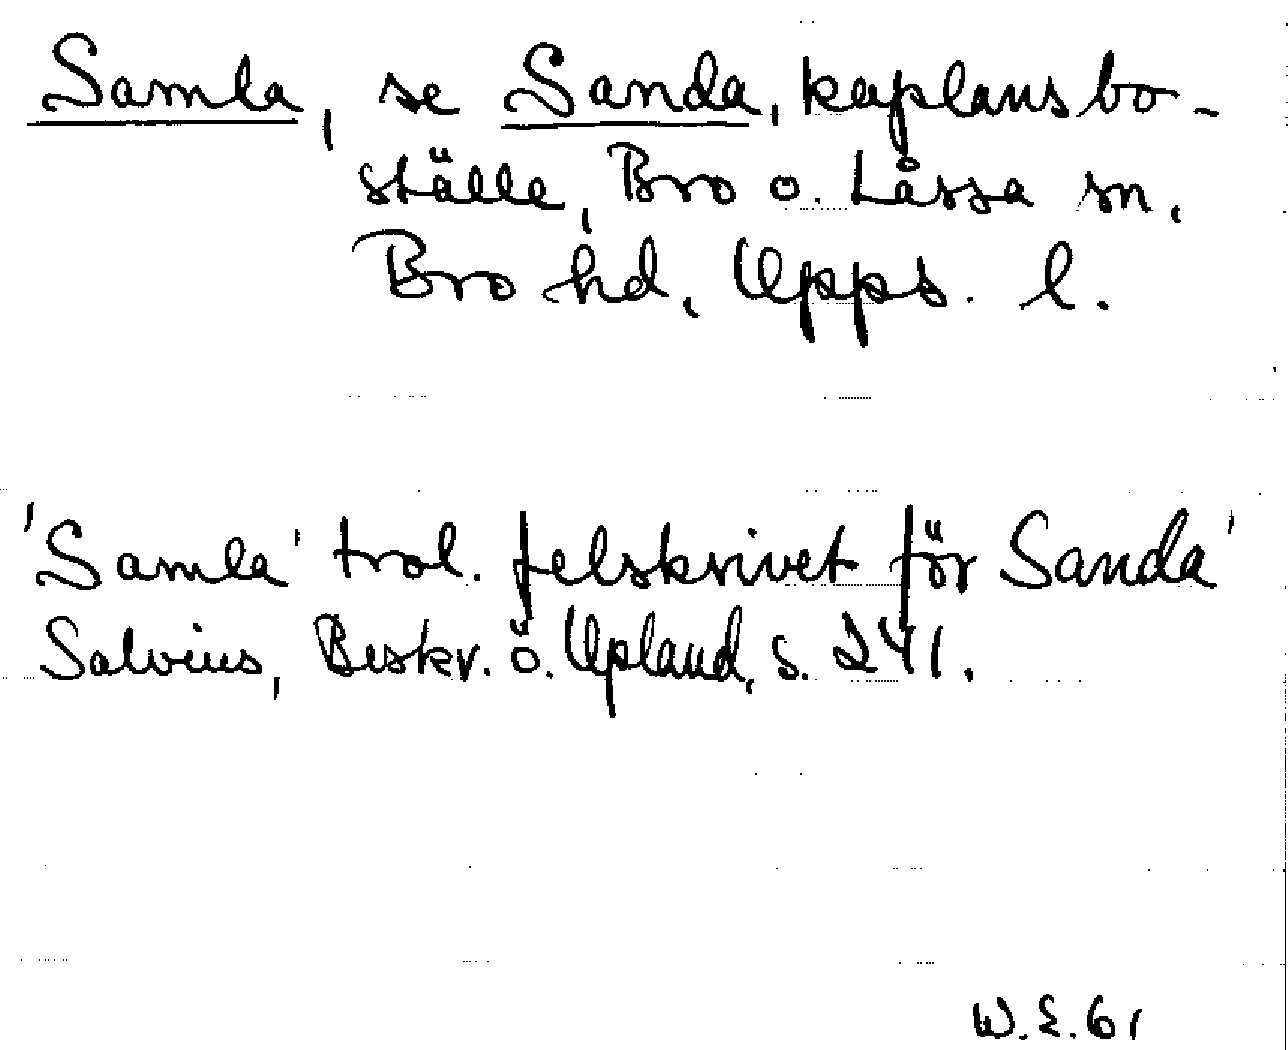 Samla, se Sanda, kaplansbo-
ställe, Bro o. Låssa sn,
Bro hd, Upps. l.
'Samla' trol. felskrivet för Sanda'
Salvius, Beskr. ö. Upland, s. 241.
W.E. 61